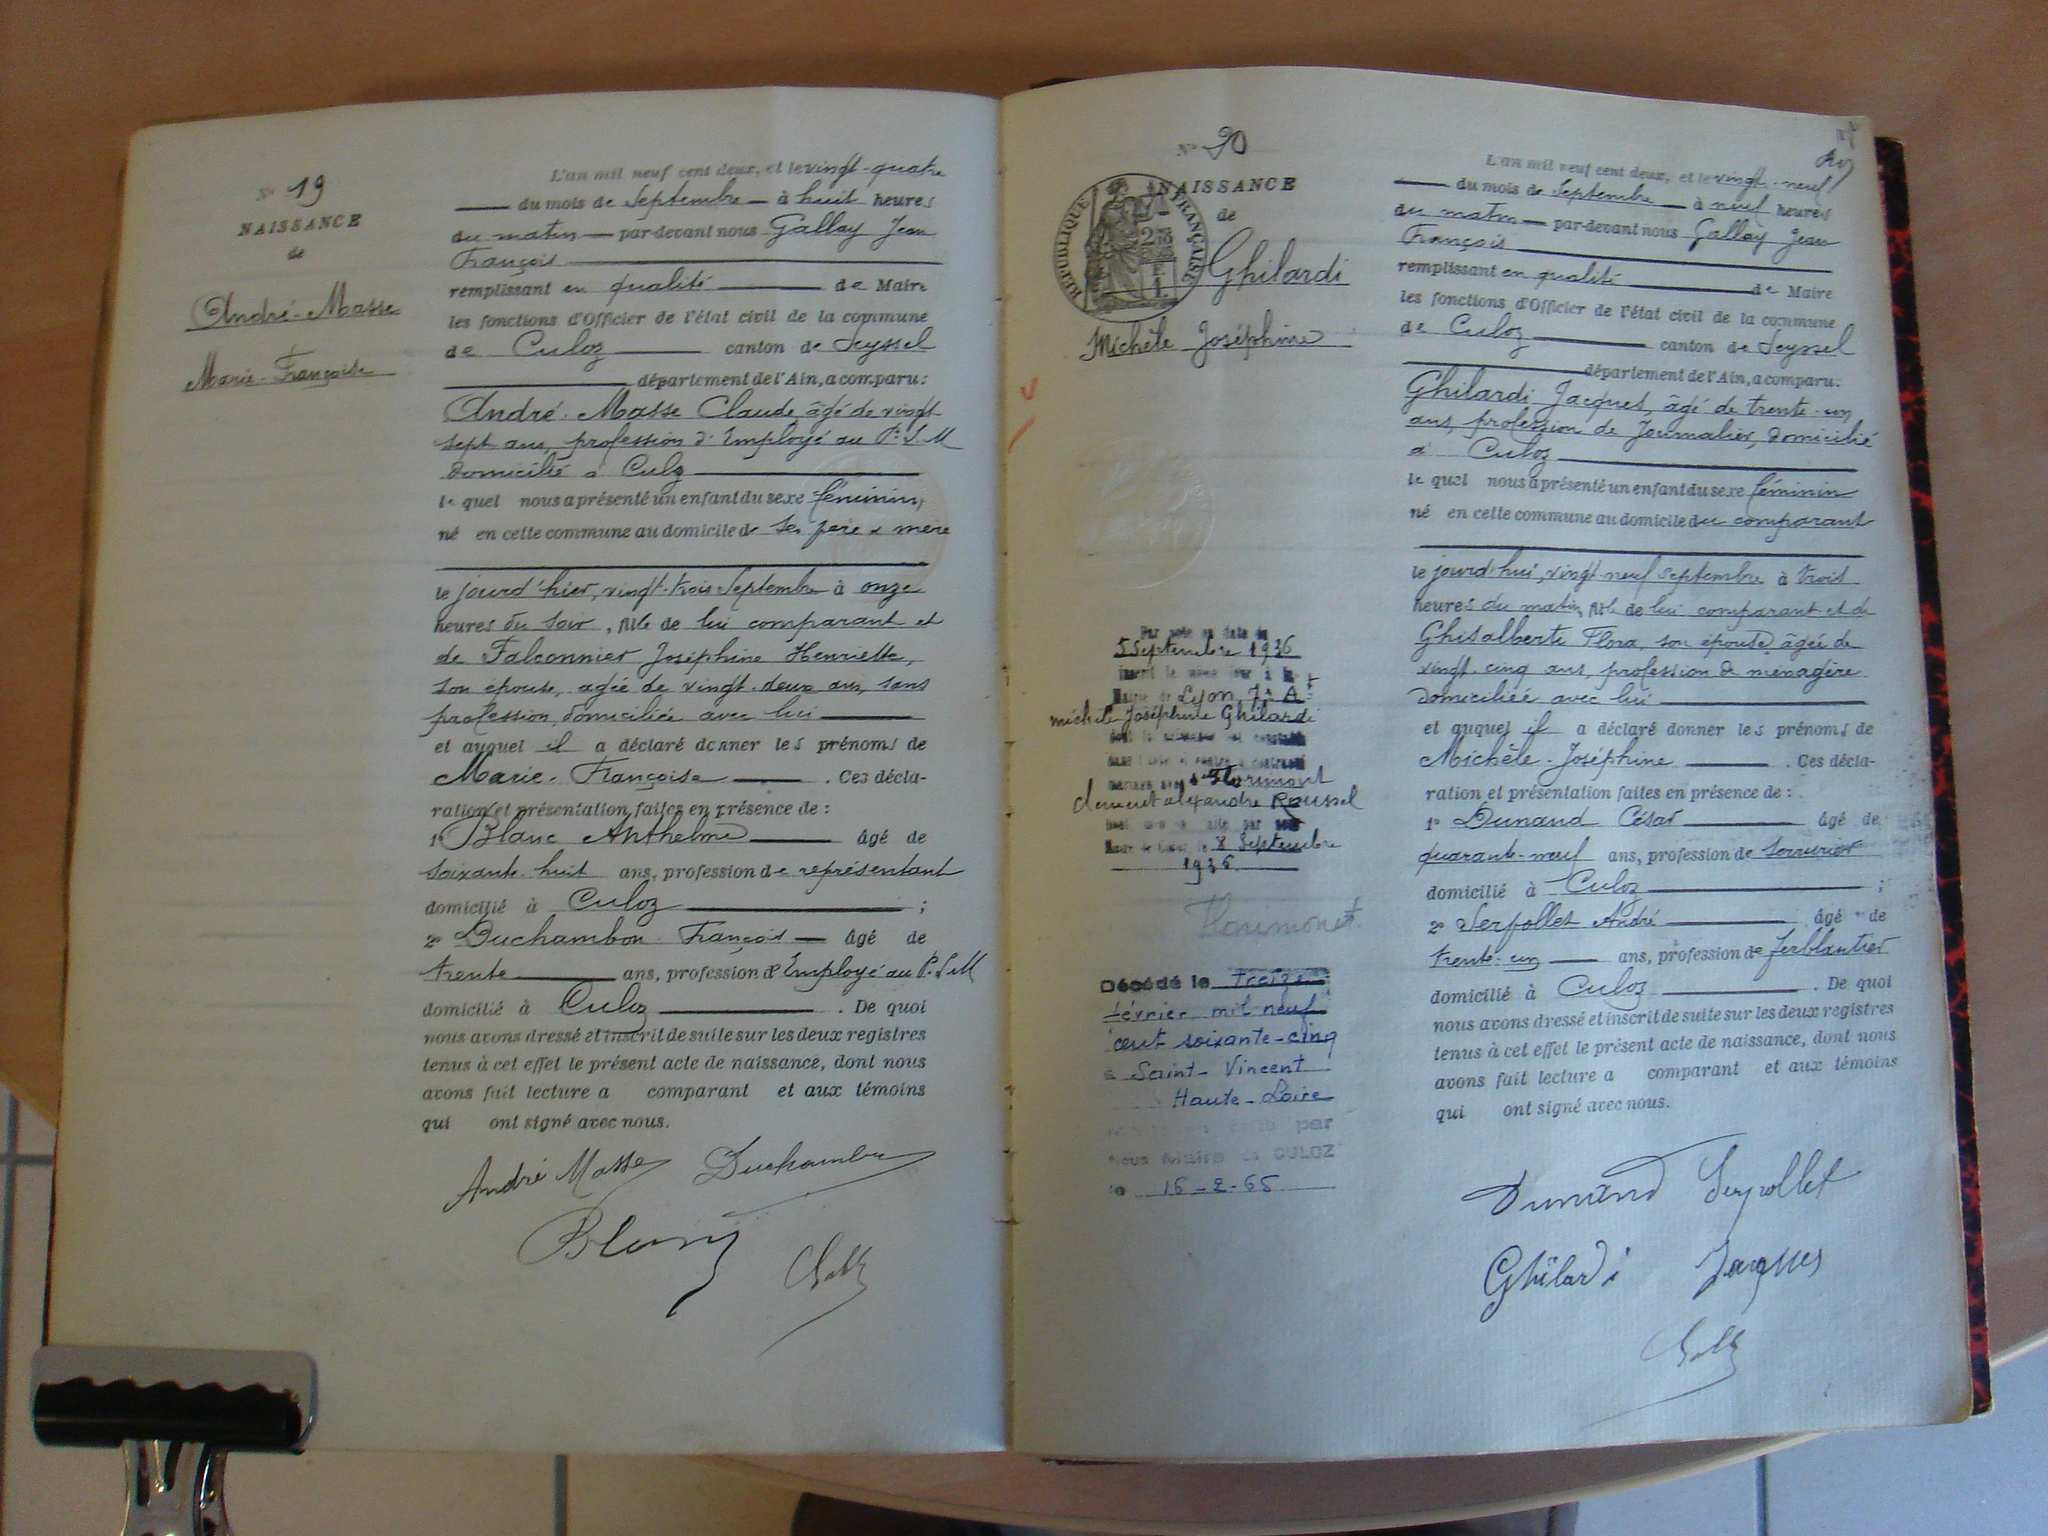 N° 19
NAISSANCE
de
André-Masse
Marie-Françoise
L'an mil neuf cent deux, et le vingt-quatre
du mois de Septembre à huit heures
du matin par-devant nous Gallay Jean
François
remplissant en qualité de Maire
les fonctions d'Officier de l'état civil de la commune
de Culoz canton de Seyssel
département de l'Ain, a comparu:
André-Masse Claude, âgé de vingt
sept ans, profession d'Employé au P.L.M
domicilié à Culoz
lequel nous a présenté un enfant du sexe féminin,
né en cette commune au domicile de ses père & mère
le jourd'hier, vingt-trois Septembre à onze
heures du soir, fille de lui comparant et
de Falconnier Joséphine Henriette,
son épouse, âgée de vingt-deux ans, sans
profession, domiciliée avec lui
et auquel il a déclaré donner les prénoms de
Marie-Françoise. Ces décla-
ration et présentation faites en présence de :
1° Blanc Anthelme âgé de
soixante-huit ans, profession de représentant
domicilié à Culoz ;
2° Duchambon François âgé de
trente ans, profession d'Employé au P.L.M
domicilié à Culoz. De quoi
nous avons dressé et inscrit de suite sur les deux registres
tenus à cet effet le présent acte de naissance, dont nous
avons fait lecture a comparant et aux témoins
qui ont signé avec nous.
André Masse Duchambon
Blanc
N° 20
NAISSANCE
de
RÉPUBLIQUE FRANÇAISE
Ghilardi
Michèle Joséphine
5 Septembre 1936
Lyon 7e At
michèle Joséphine Ghilardi
Florimont
clement alexandre Roussel
8 Septembre
1936
Décédé le treize
février mil neuf
cent soixante-cinq
à Saint-Vincent
Haute-Loire
par
Nous Maire de CULOZ
le 16-2-65
L'an mil neuf cent deux, et le vingt-neuf
du mois de Septembre à neuf heures
du matin par-devant nous Gallay Jean
François
remplissant en qualité de Maire
les fonctions d'Officier de l'état civil de la commune
de Culoz canton de Seyssel
département de l'Ain, a comparu:
Ghilardi Jacques, âgé de trente-un
ans, profession de Journalier, domicilié
à Culoz
lequel nous a présenté un enfant du sexe féminin
né en cette commune au domicile du comparant
le jourd'hui, vingt-neuf septembre à trois
heures du matin, fille de lui comparant et de
Ghisalberti Flora, son épouse, âgée de
vingt-cinq ans, profession de ménagère
domiciliée avec lui
et auquel il a déclaré donner les prénoms de
Michèle-Joséphine. Ces décla-
ration et présentation faites en présence de :
1° Dunand César âgé de
quarante-neuf ans, profession de serrurier
domicilié à Culoz ;
2° Serpollet André âgé de
trente-un ans, profession de ferblantier
domicilié à Culoz. De quoi
nous avons dressé et inscrit de suite sur les deux registres
tenus à cet effet le présent acte de naissance, dont nous
avons fait lecture a comparant et aux témoins
qui ont signé avec nous.
Dunand Serpollet
Ghilardi Jacques